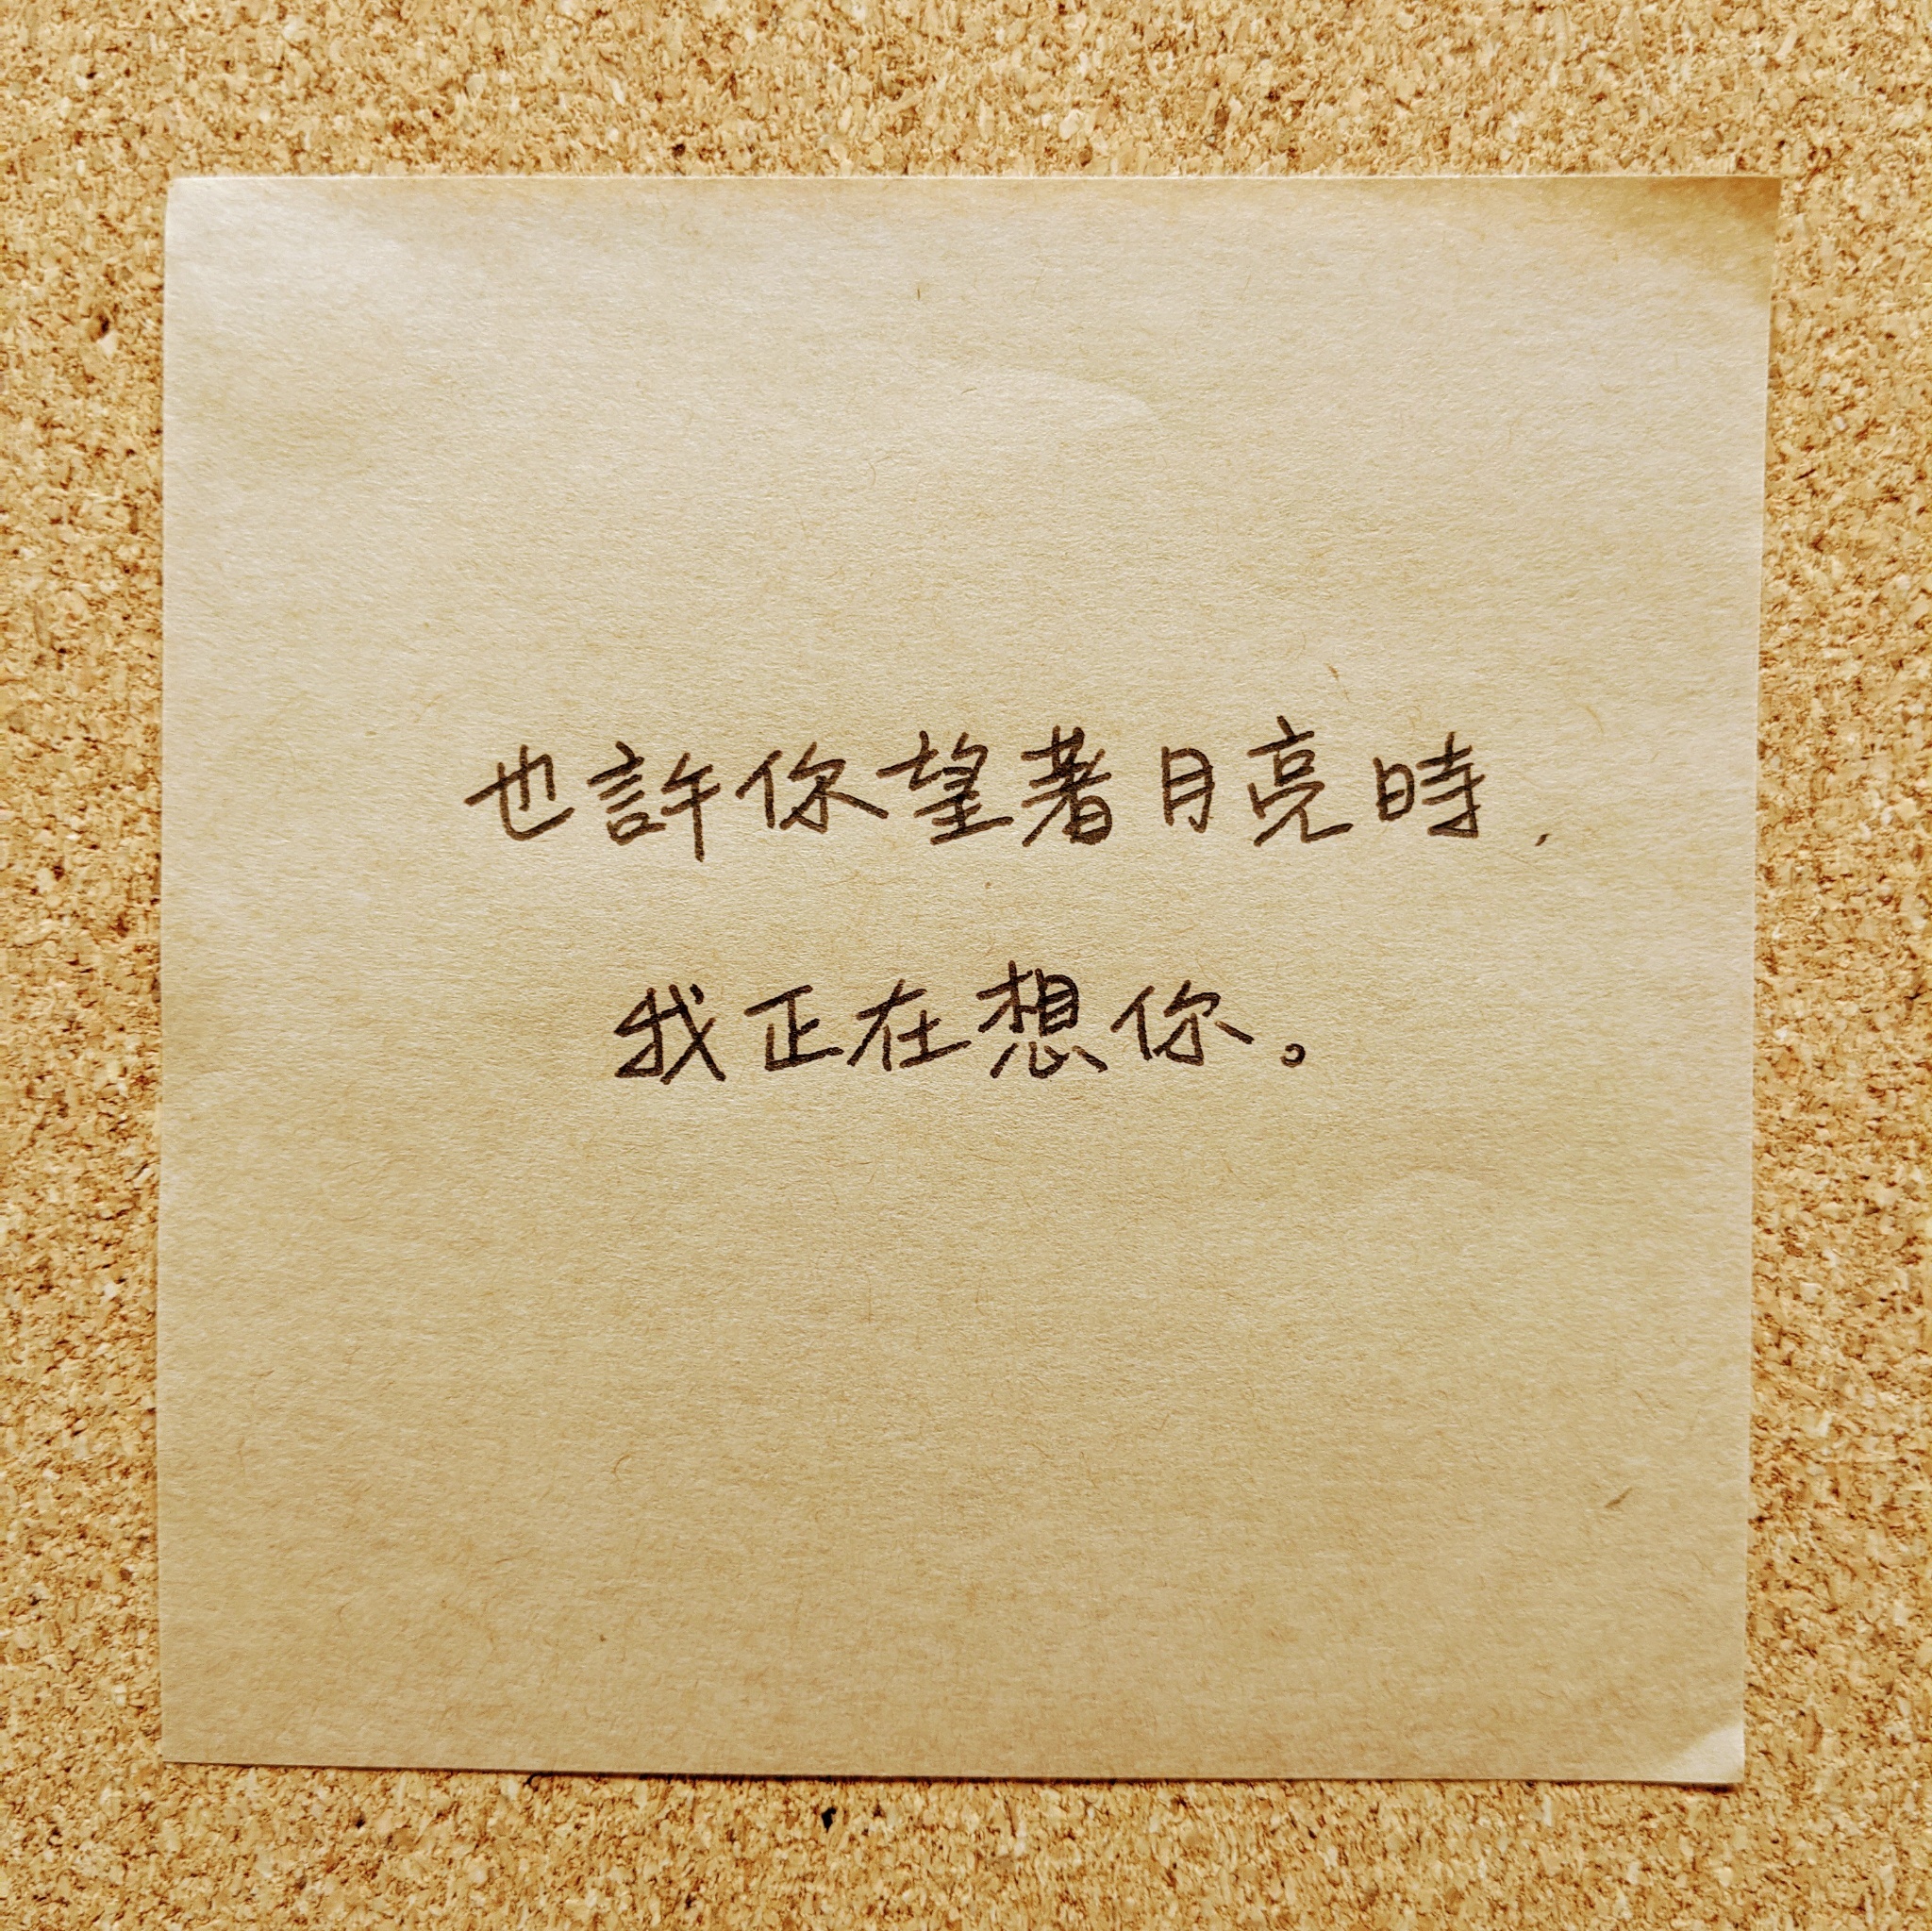 也許你望著月亮時，
我正在想你。